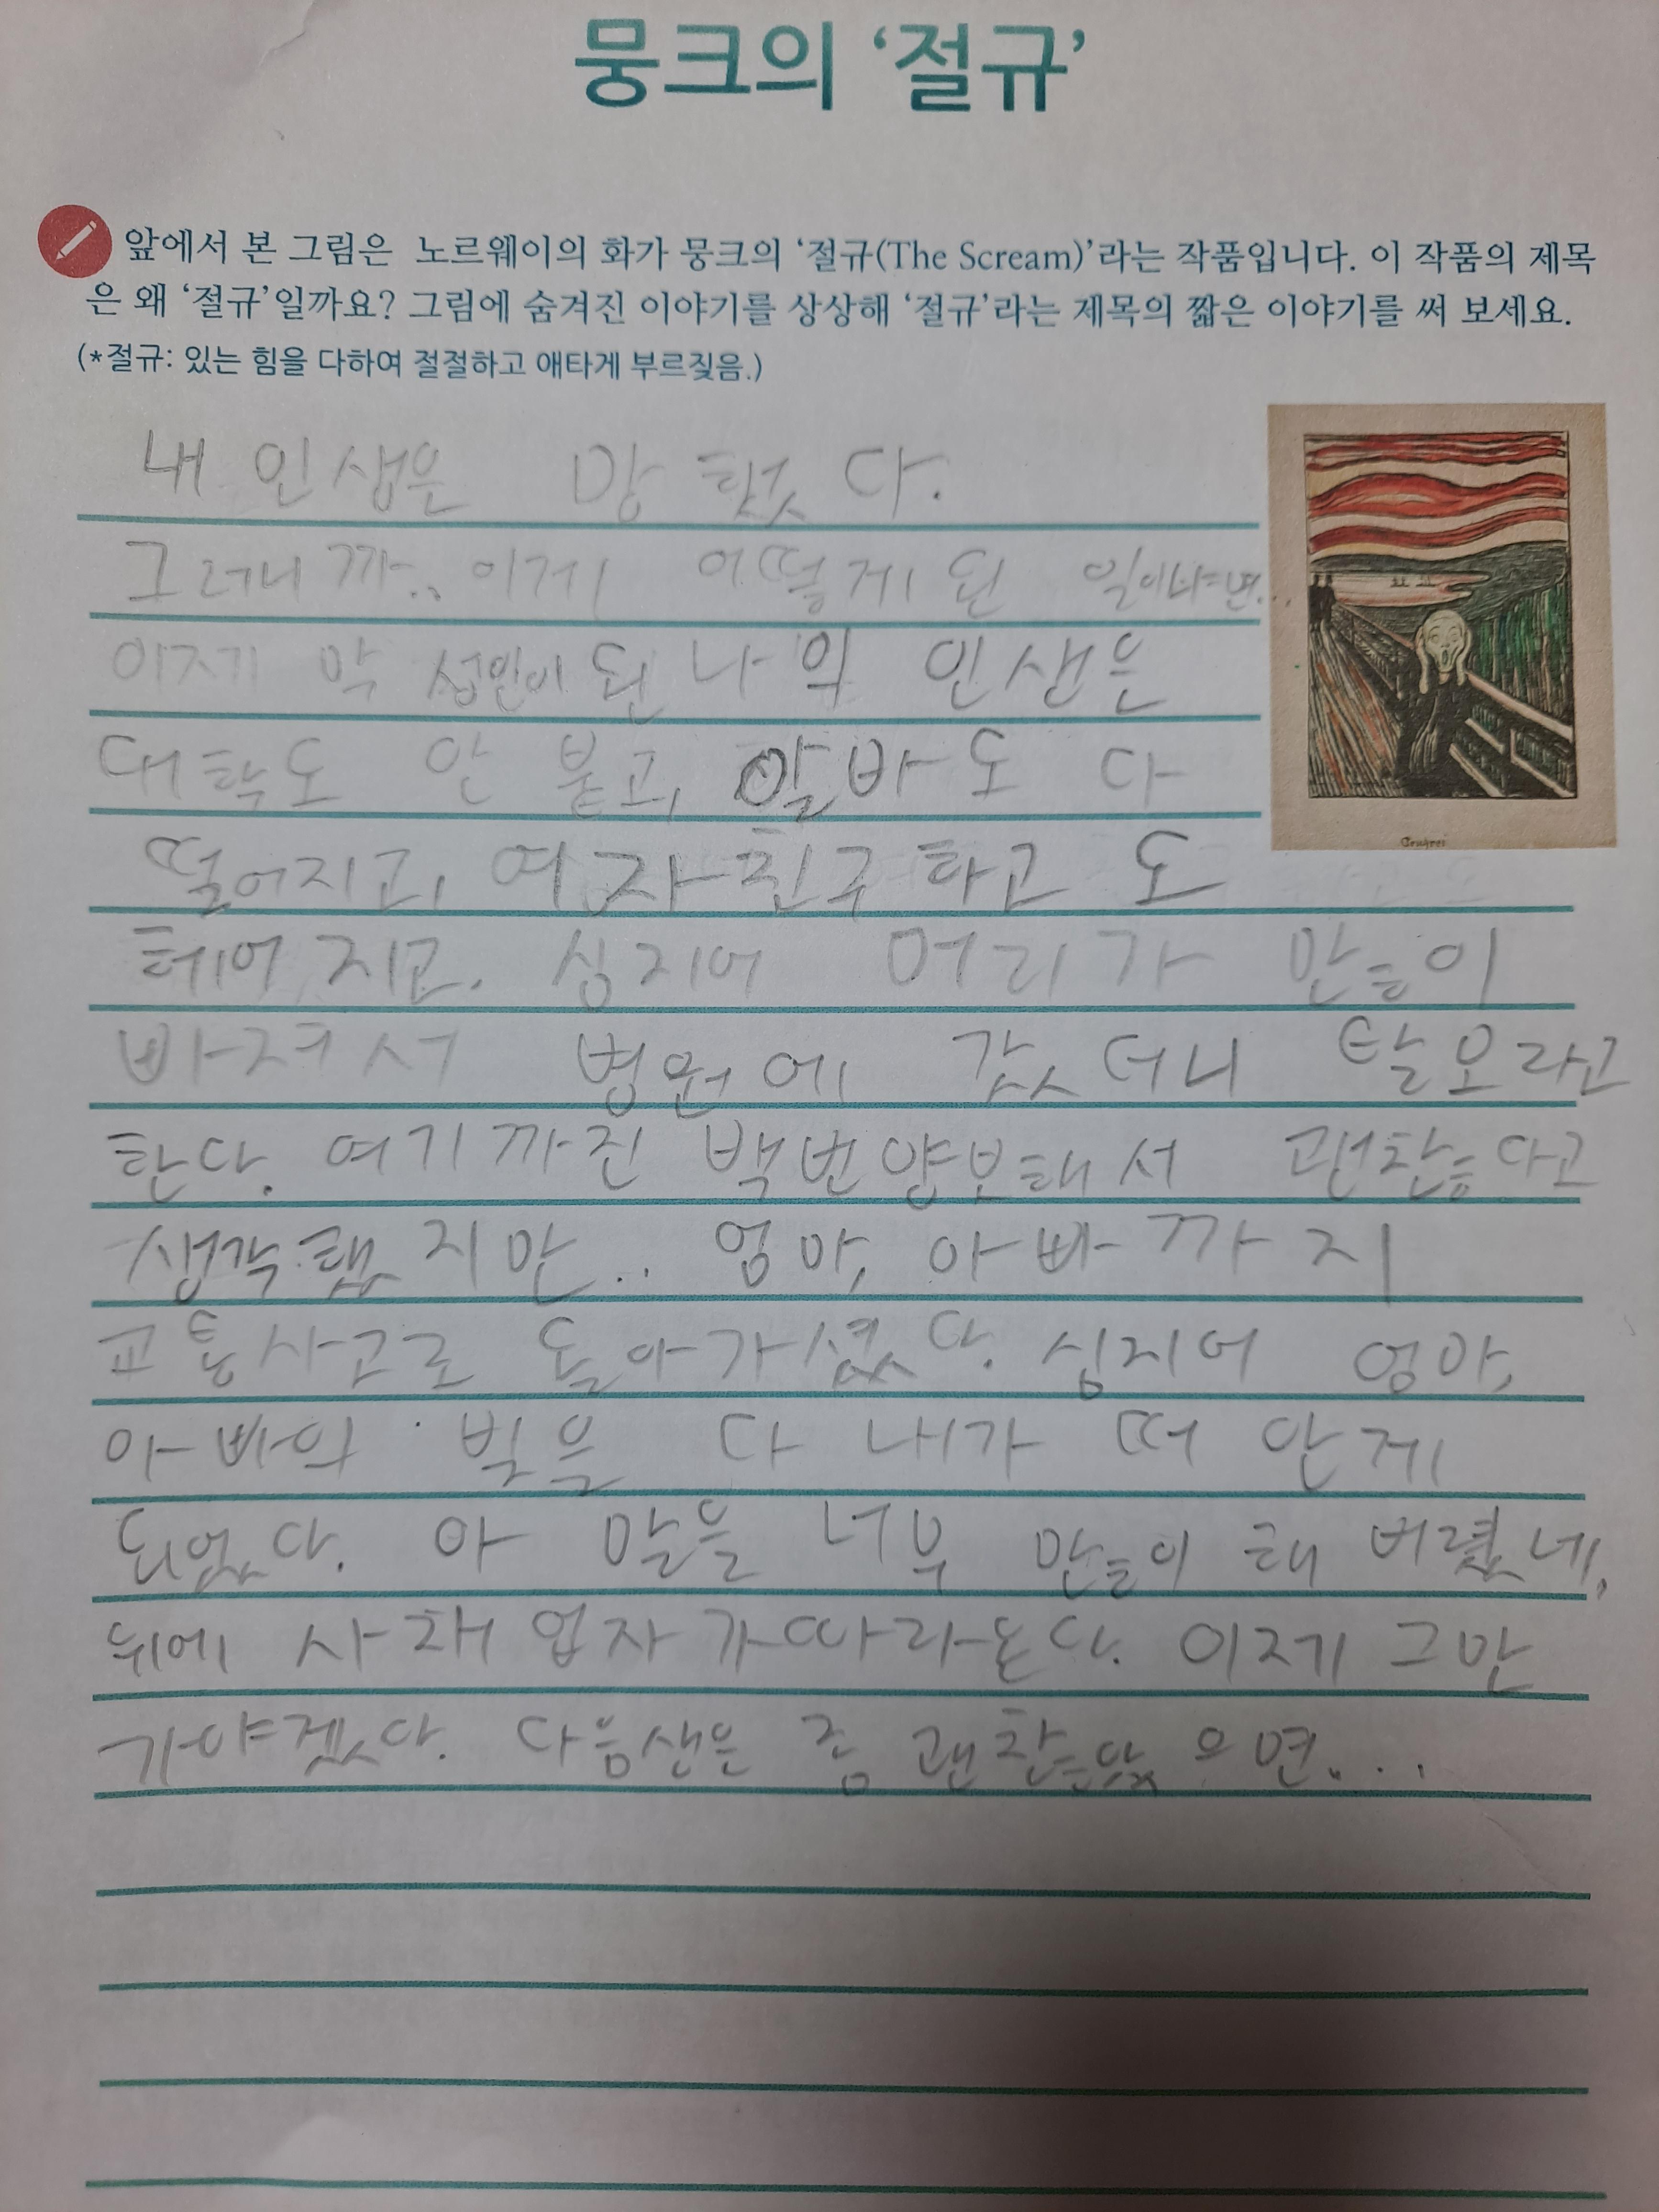 뭉크의 '절규'
앞에서 본 그림은 노르웨이의 화가 뭉크의 '절규(The Scream)'라는 작품입니다. 이 작품의 제목
은 왜 '절규'일까요? 그림에 숨겨진 이야기를 상상해 '절규'라는 제목의 짧은 이야기를 써 보세요.
(*절규: 있는 힘을 다하여 절절하고 애타게 부르짖음.)
내 인생은 망했다.
그러니까.. 이게 어떻게 된 일이냐면...
이제 막 성인이 된 나의 인생은
대학도 안 붙고, 알바도 다
떨어지고, 여자친구하고도
헤어지고. 심지어 머리가 많이
빠져서 병원에 갔더니 탈모라고
한다. 여기까진 백번양보해서 괜찮다고
생각했지만.. 엄마, 아빠까지
교통사고로 돌아가셨다. 심지어 엄마,
아빠의 빚은 다 내가 떠 안게
되었다. 아 말을 너무 많이 해 버렸네,
뒤에 사채업자가 따라온다. 이제 그만
가야겠다. 다음생은 좀 괜찮았으면...